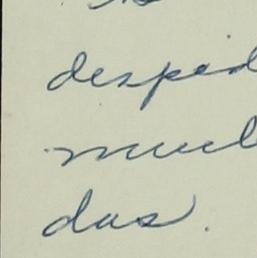 despid
much
das.